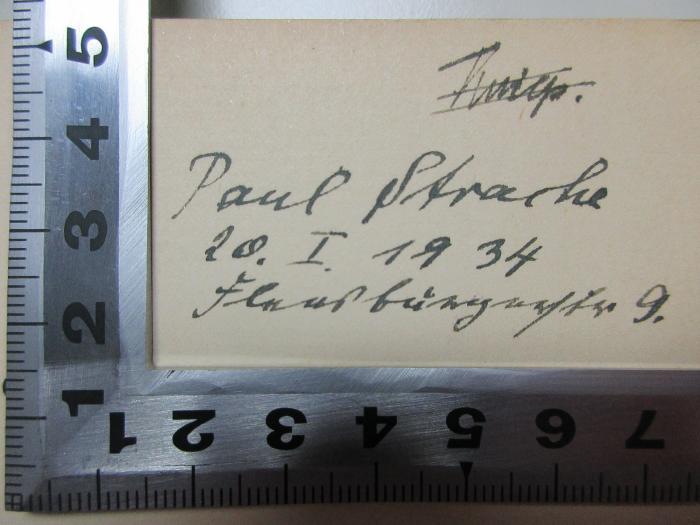 Paul Strache
20. I. 1934
Flensburgerstr 9.
5
4
3
2
1
1 2 3 4 5 6 7